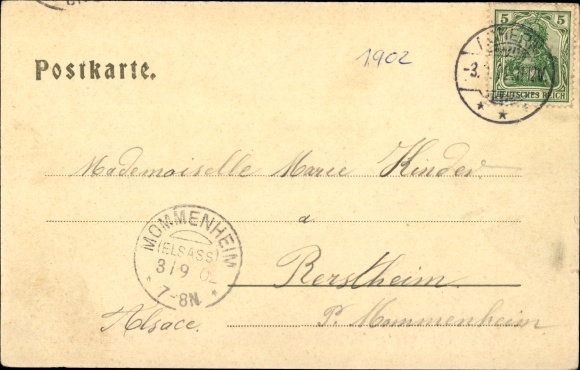 5 5
DEUTSCHES REICH
-3.
1902
Postkarte.
Mademoiselle Marie Kinder
a
MOMMENHEIM
(ELSASS)
3/9 02
7-8N.
Berstheim.
Alsace. P. Mommenheim